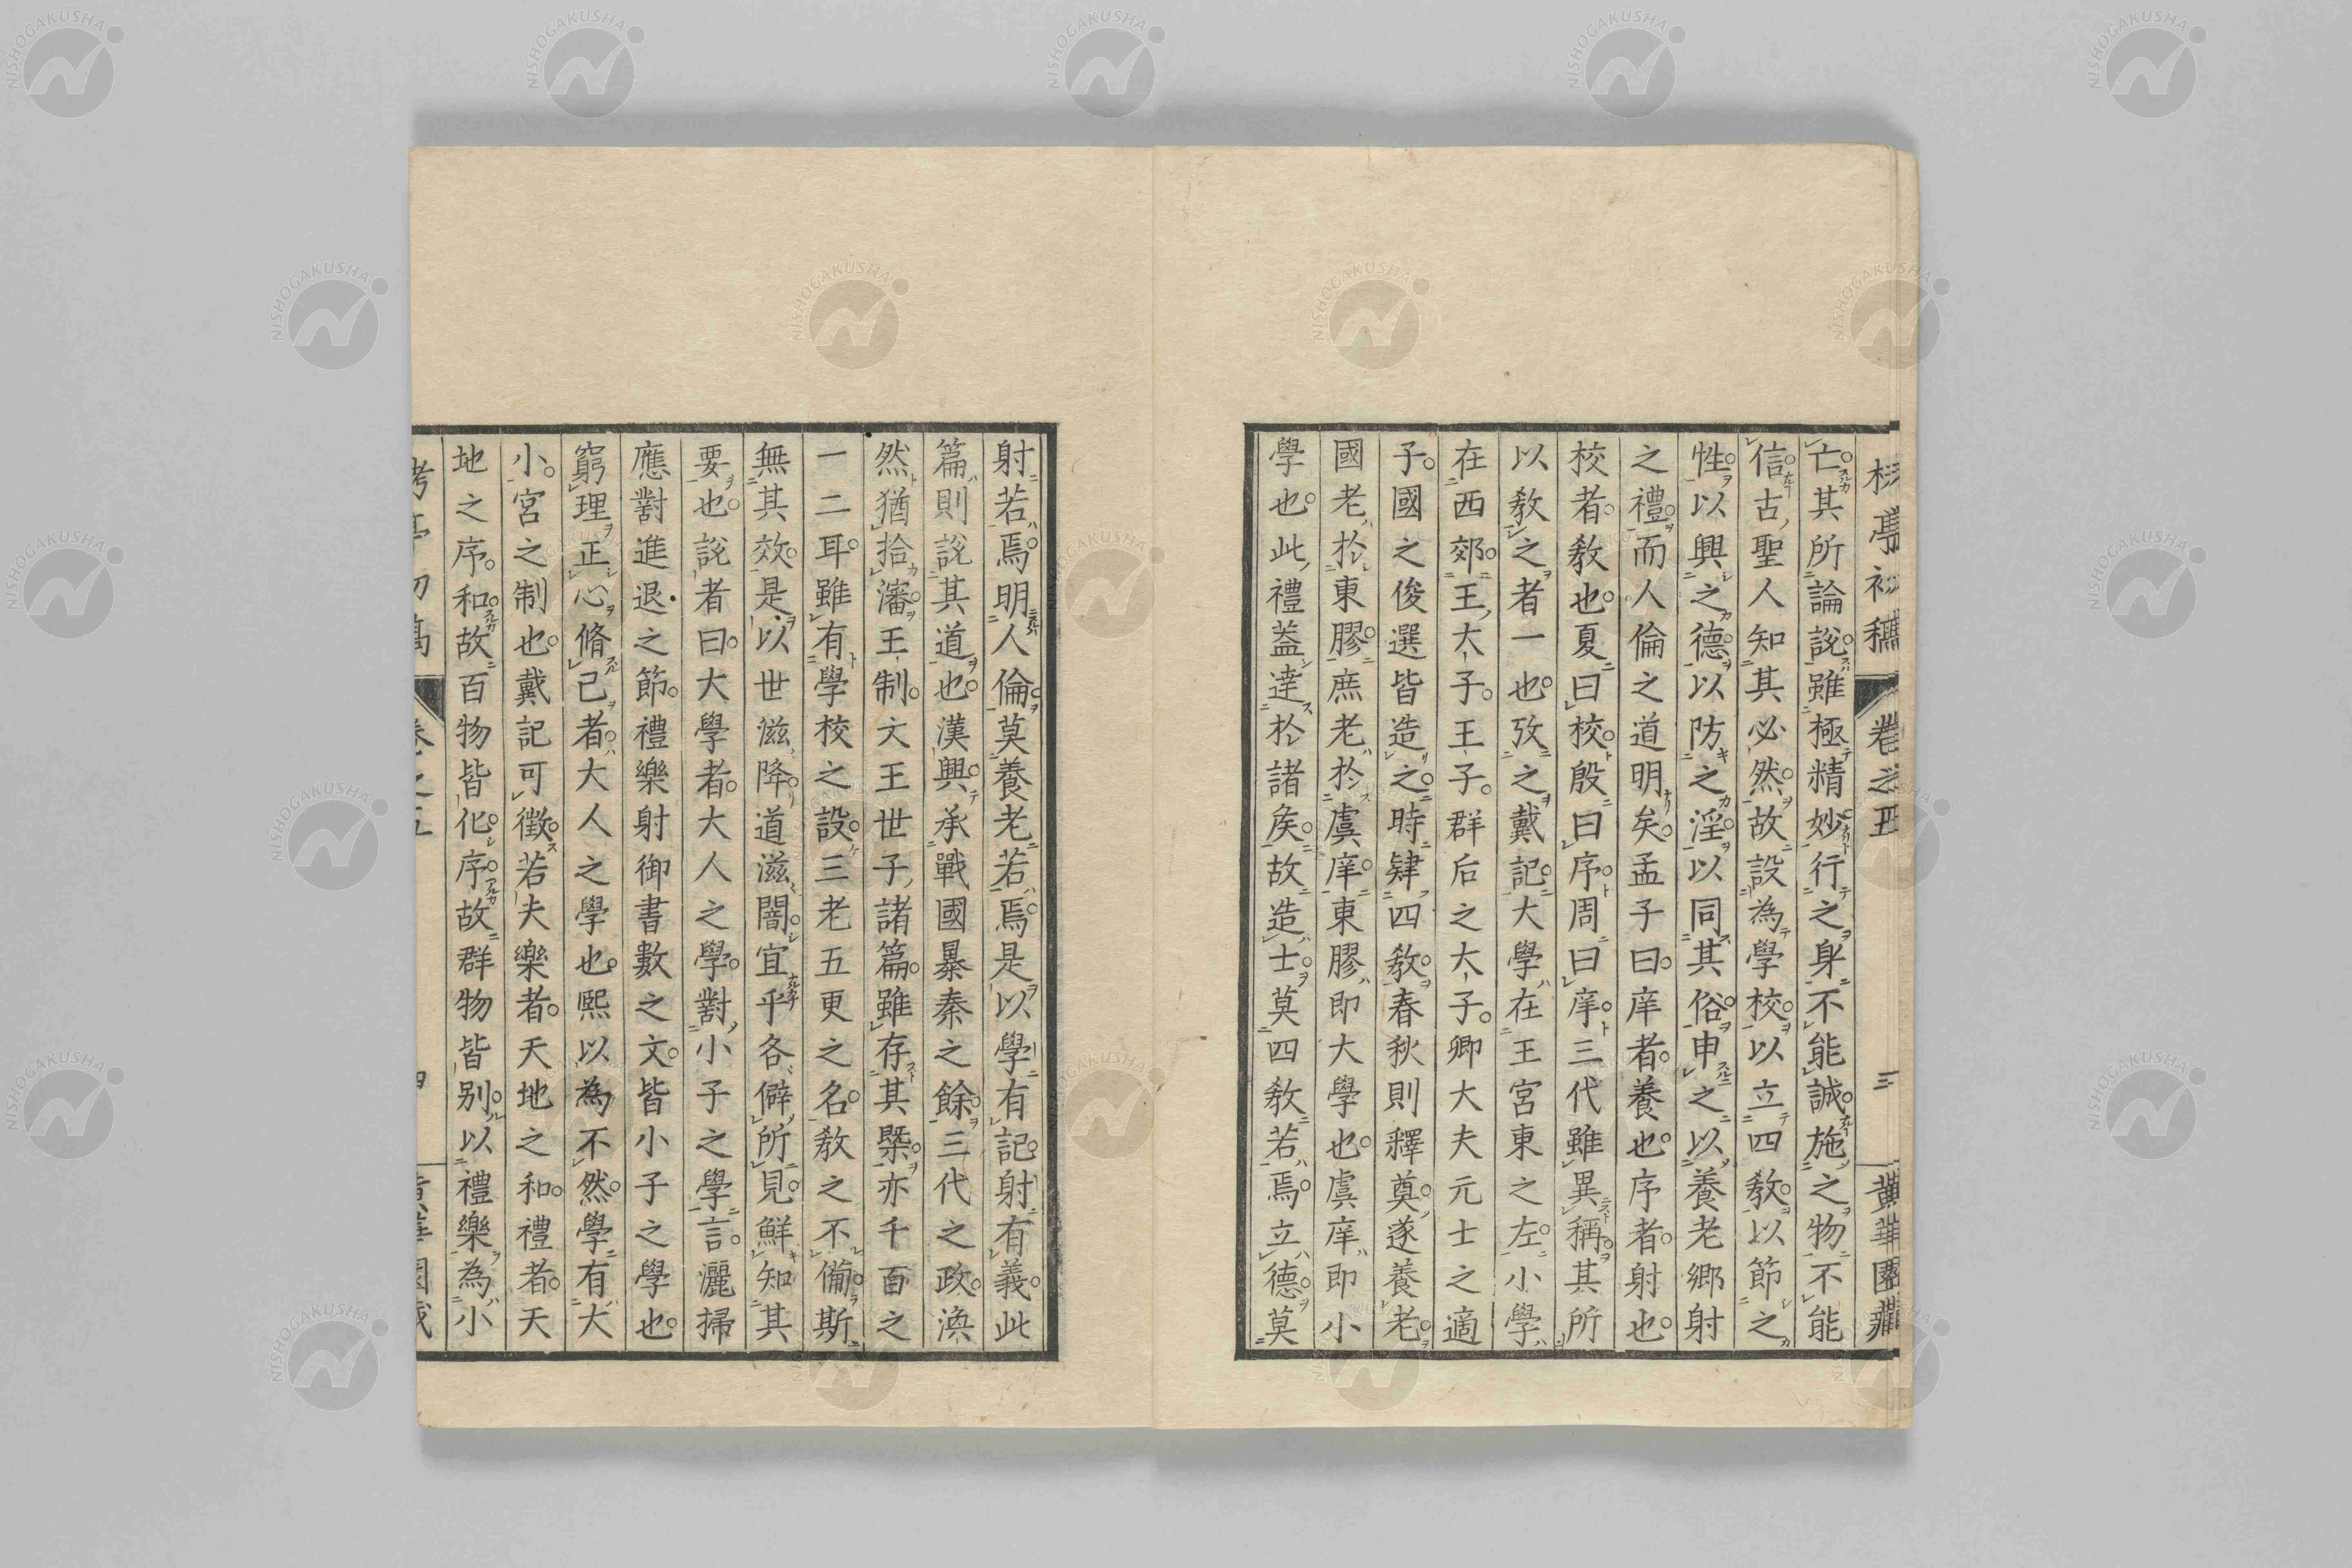 亡其所論說雖極精妙行之身不能誠施之物不能
信古聖人知其必然故設為學校以立四教以節之
性以興之德以防之淫以同其俗申之以養老鄉射
之禮而人倫之道明矣孟子曰庠者養也序者射也
校者教也夏曰校殷曰序周曰庠三代雖異稱其所
以教之者一也攷之戴記大學在王宮東之左小學
在西郊王大子王子群后之大子卿大夫元士之適
子國之俊選皆造之時肄四教春秋則釋奠遂養老
國老於東膠庶老於虞庠東膠即大學也虞庠即小
學也此禮蓋達於諸矦故造士莫四教若焉立德莫
射若焉明人倫莫養老若焉是以學有記射有義此
篇則說其道也漢興承戰國暴秦之餘三代之政渙
然猶拾瀋王制文王世子諸篇雖存其槩亦千百之
一二耳雖有學校之設三老五更之名教之不備斯
無其效是以世滋降道滋闇宜乎各僻所見鮮知其
要也說者曰大學者大人之學對小子之學言灑掃
應對進退之節禮樂射御書數之文皆小子之學也
窮理正心脩己者大人之學也熙以為不然學有大
小宮之制也戴記可徵若夫樂者天地之和禮者天
地之序和故百物皆化序故群物皆別以禮樂為小
卷之五
NISHOGAKUSHA